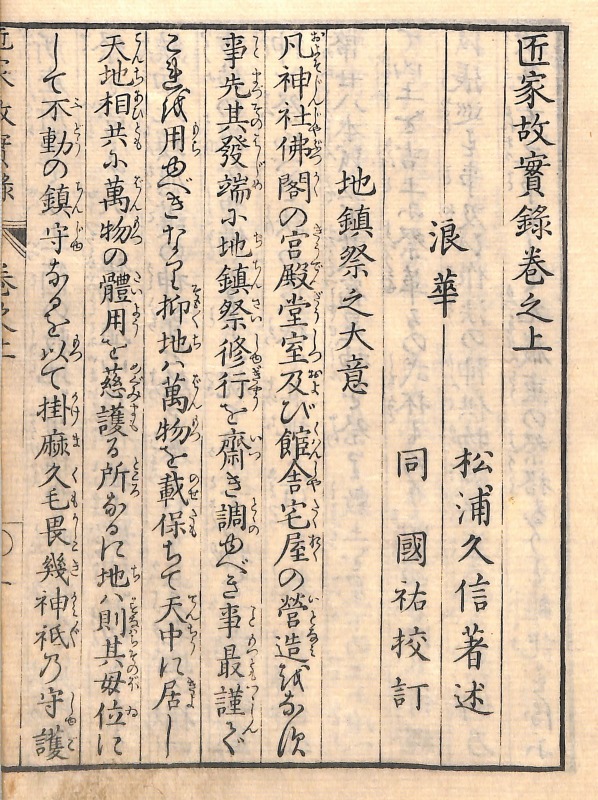 匠家故實錄巻之上
浪華
松浦久信著述
同 國祐校訂
地鎮祭之大意
凡神社佛閣の宮殿堂室及び館舎宅屋の營造をなす
事先其發端に地鎮祭修行を齋き調ゆべき事最謹で
これを用ゆべきなり抑地ハ萬物を載保ちて天中に居し
天地相共に萬物の體用を慈護る所なるに地ハ則其毋位に
して不動の鎮守なるを以て掛麻久毛畏幾神祇乃守護